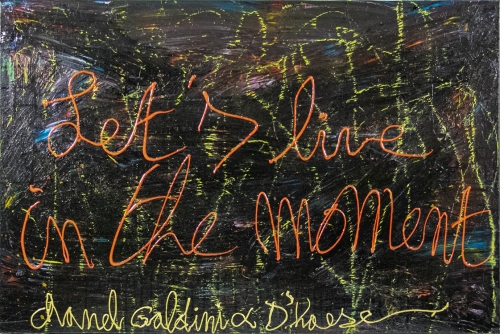 Let's live
in the moment
chanel Galdini & D'Koese